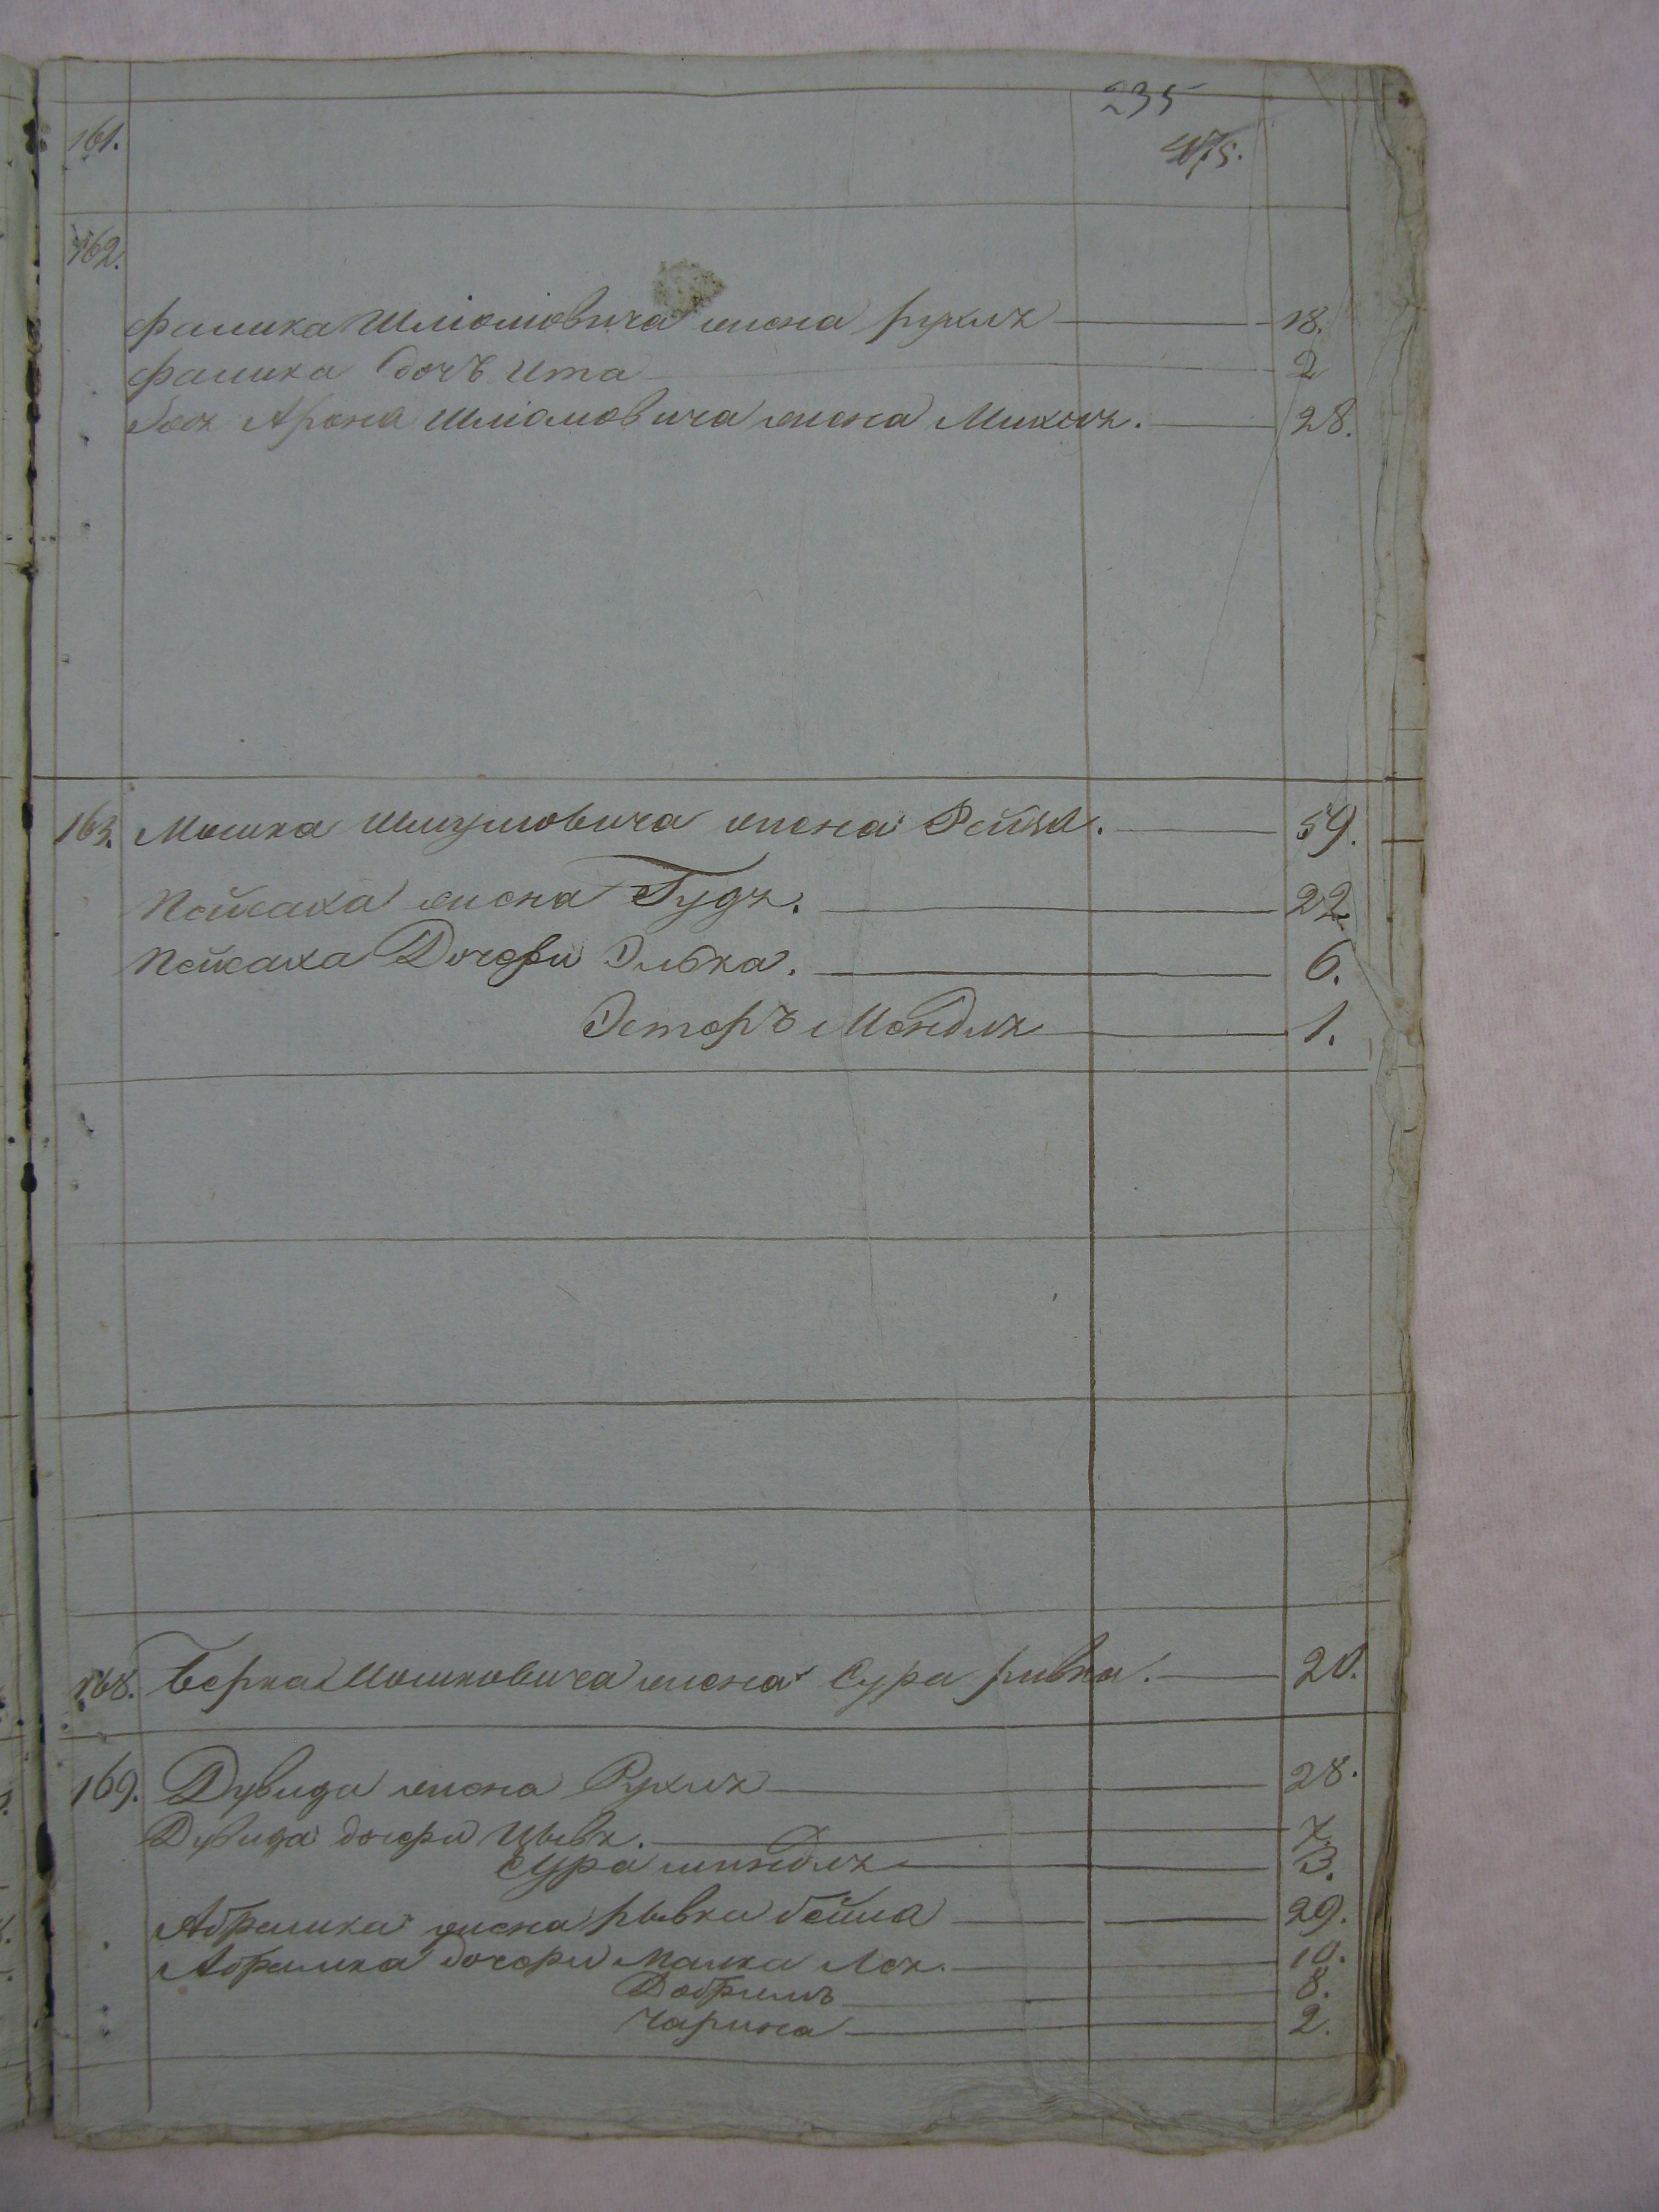 235
475.
161.
162.
Фалика Шліомовича жена Рухля 18.
Фалика дочь Ита 2
Арона Шліомовича жена Михля. 28.
163. Мошка Шмулновича жена Рейза. 59.
Пейсаха жена Гудя. 22.
Пейсаха Дочери Элька. 6.
Эстеръ Мендля 1.
168. Берка Мошковича жена Сура Ривка. 20.
169. Дувида жена Рухля 28.
Дувида дочери Цывя. 7.
Сура миндля 3.
Абрамка жена Рывка бейла 29.
Абрамка дочери Малка Лея. 10.
Добрышъ 8.
Чарина 2.